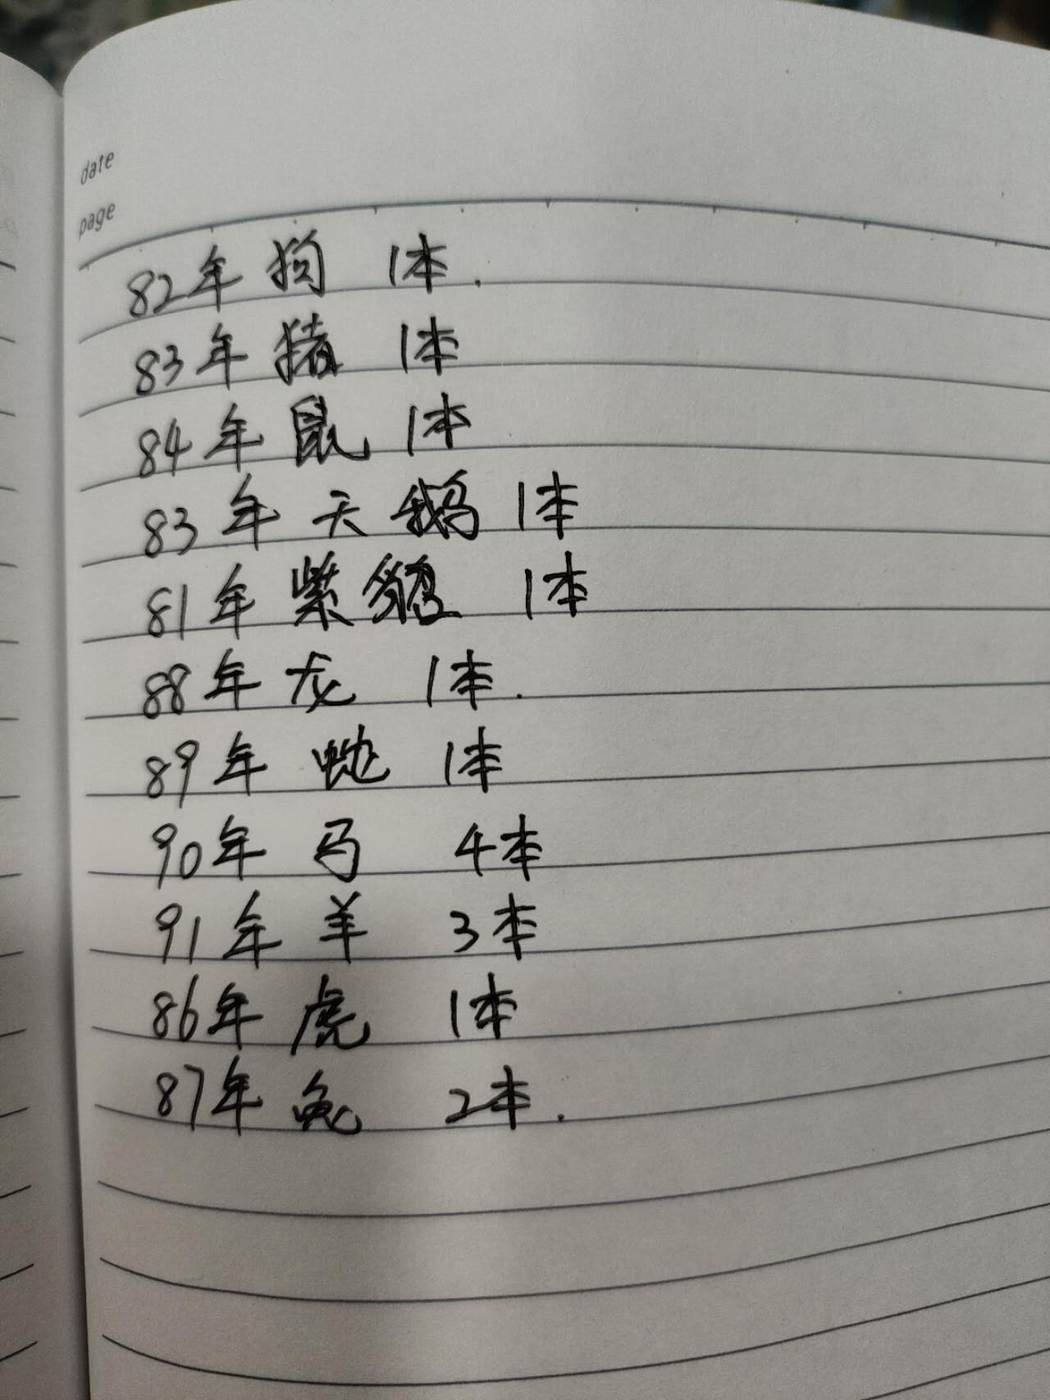 date
page
82年 狗 1本.
83年 猪 1本
84年 鼠 1本
83年 天鹅 1本
81年 紫貂 1本
88年 龙 1本.
89年 蛇 1本
90年 马 4本
91年 羊 3本
86年 虎 1本
87年 兔 2本.